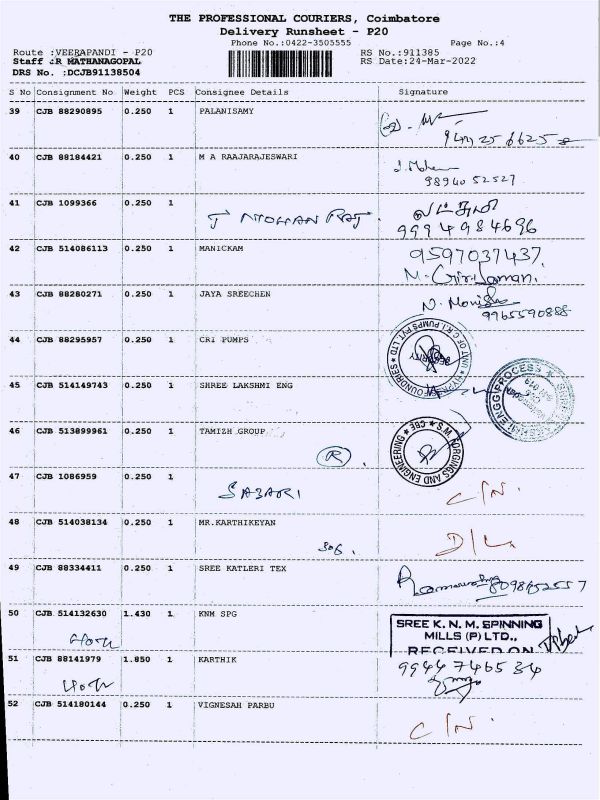 THE PROFESSIONAL COURIERS, Coimbatore
Delivery Runsheet - P20
Phone No.:0422-3505555 Page No.:4
Route :VEERAPANDI - P20 RS No.:911385
Staff :R MATHANAGOPAL RS Date:24-Mar-2022
DRS No. :DCJB91138504
S No Consignment No Weight PCS Consignee Details Signature
39 CJB 88290895 0.250 1 PALANISAMY
40 CJB 88184421 0.250 1 M A RAAJARAJESWARI
98940 52527
41 CJB 1099366 0.250 1
T MOHAN RAJ
9994984696
42 CJB 514086113 0.250 1 MANICKAM 9597037437
43 CJB 88280271 0.250 1 JAYA SREECHEN
9965590888
44 CJB 88295957 0.250 1 CRI PUMPS
45 CJB 514149743 0.250 1 SHREE LAKSHMI ENG
46 CJB 513899961 0.250 1 TAMIZH GROUP
R
47 CJB 1086959 0.250 1
SABARI C/N.
48 CJB 514038134 0.250 1 MR.KARTHIKEYAN
306. D/L
49 CJB 88334411 0.250 1 SREE KATLERI TEX
50 CJB 514132630 1.430 1 KNM SPG
SREE K. N. M. SPINNING
MILLS (P) LTD.,
RECEIVED ON
51 CJB 88141979 1.850 1 KARTHIK 99447 46534
52 CJB 514180144 0.250 1 VIGNESAH PARBU
C/N.